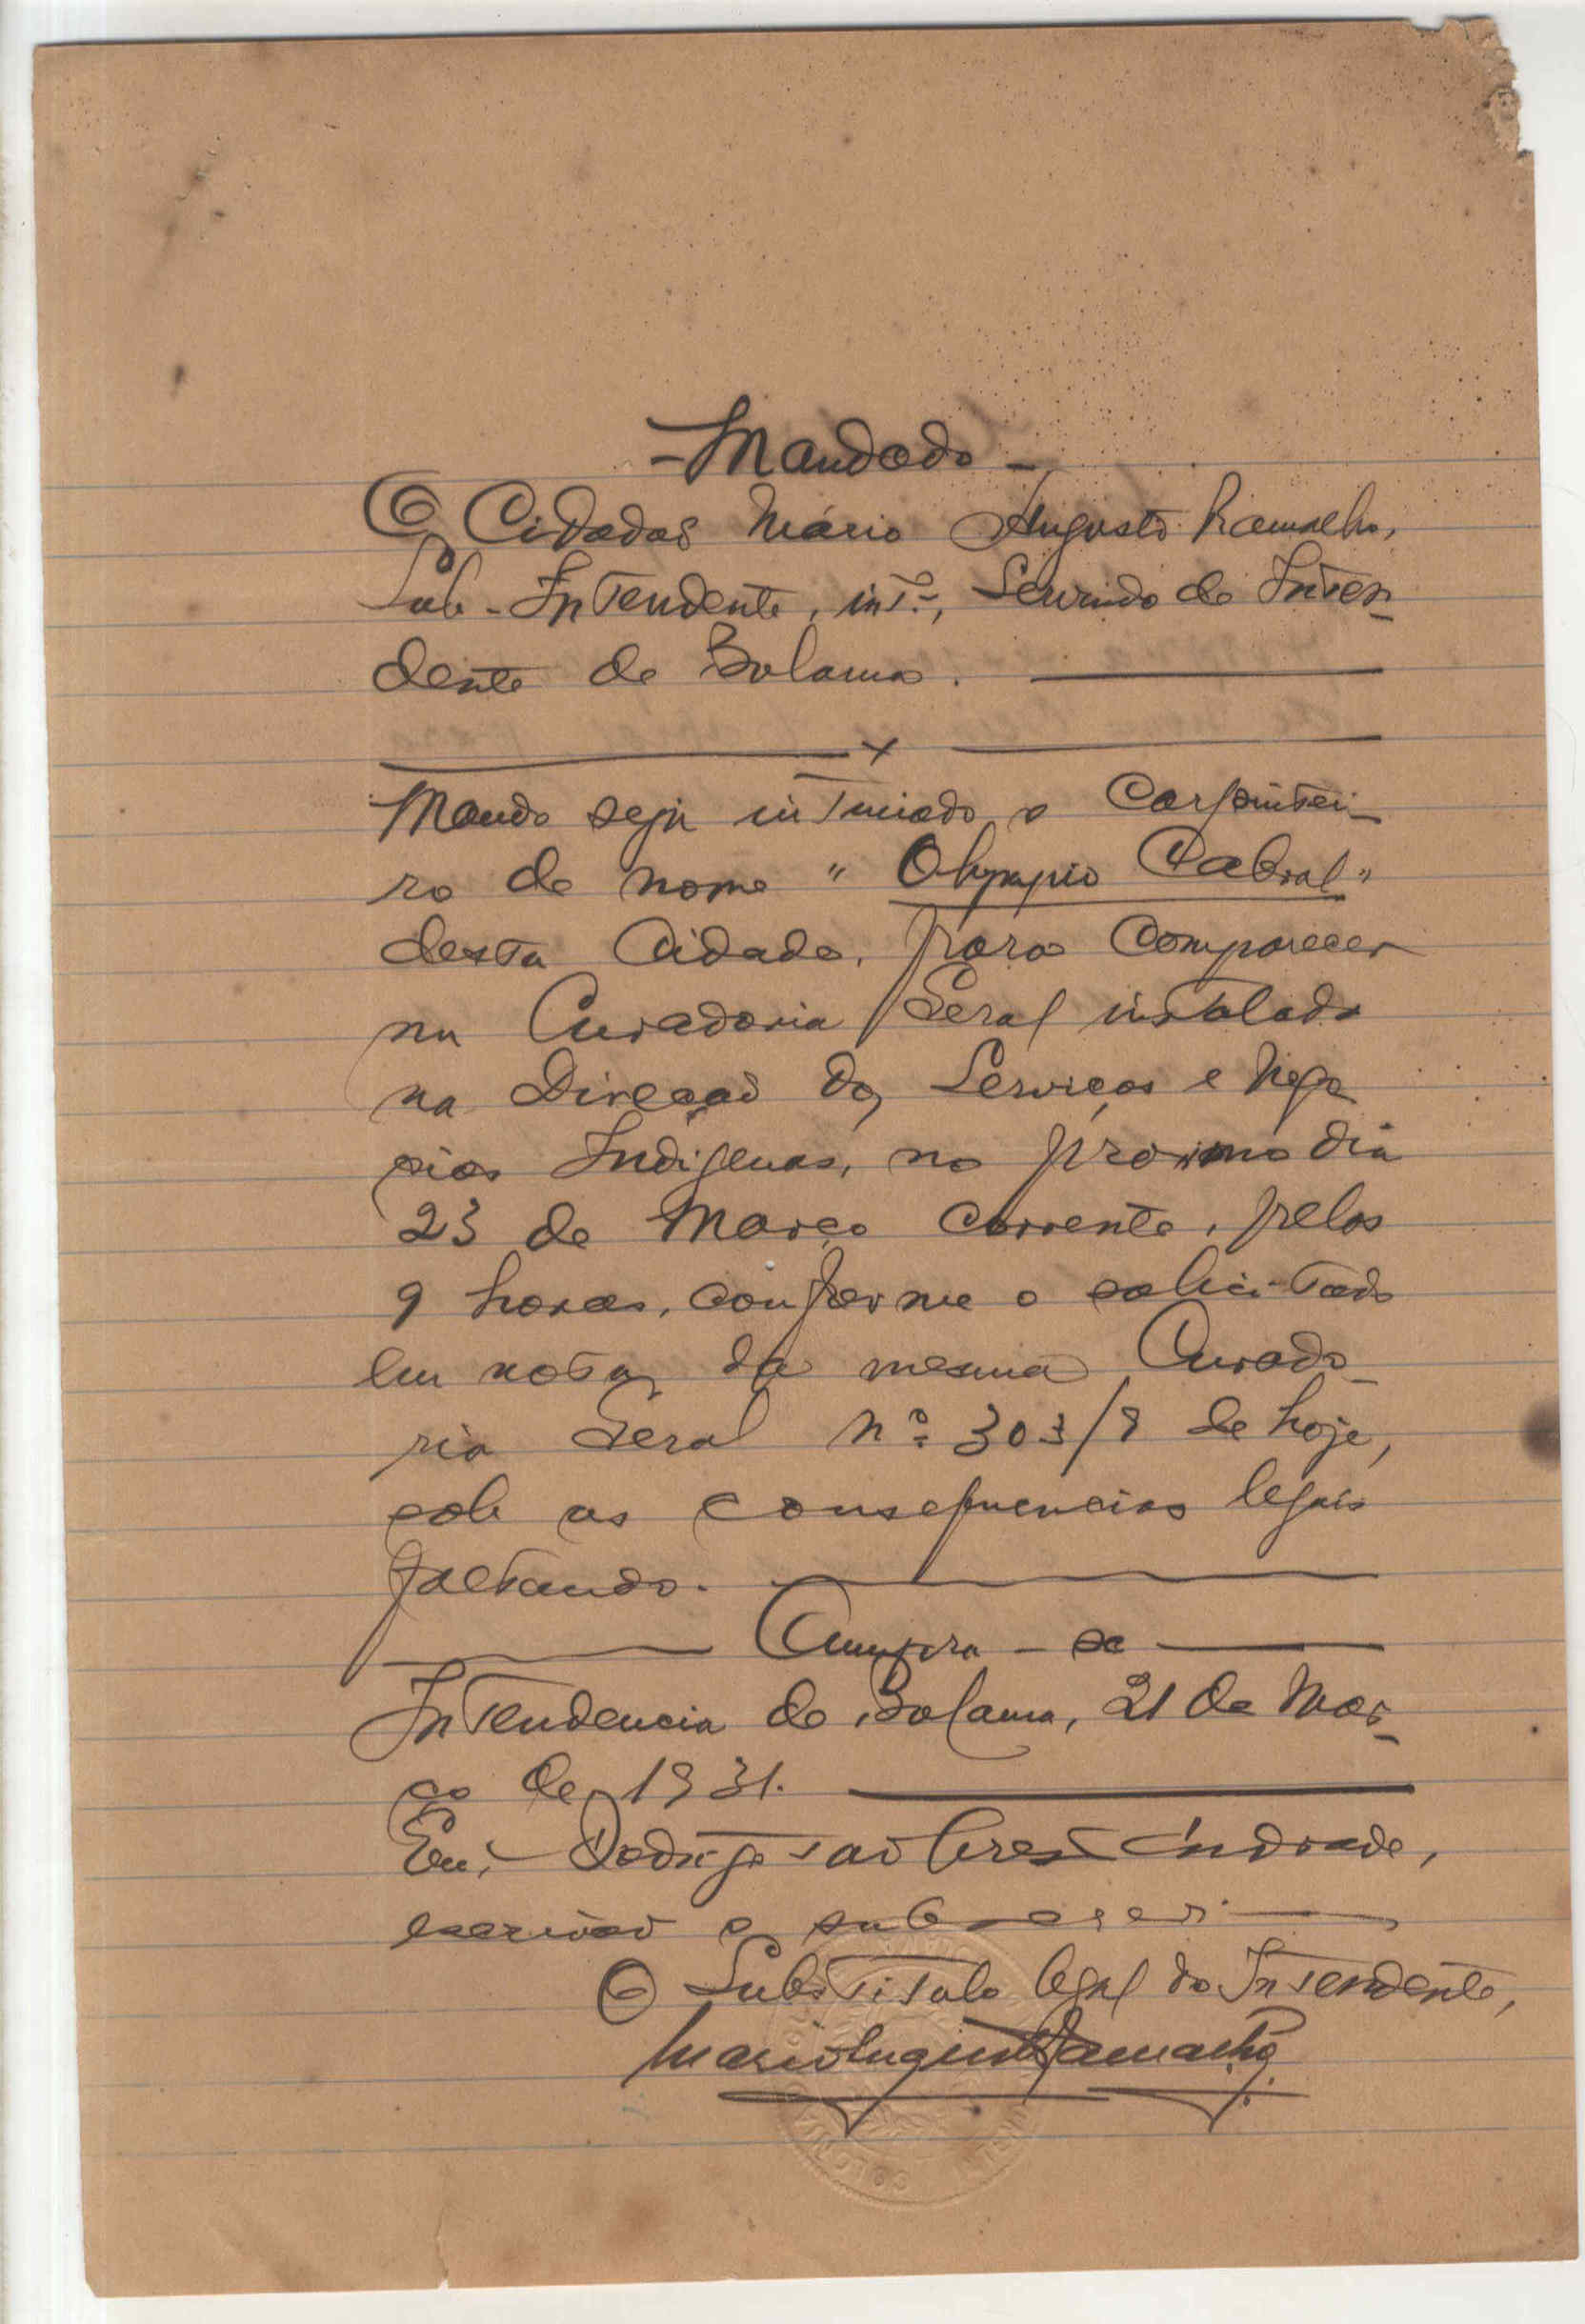 - Mandado -
O Cidadão Mário Augusto Ramalho,
Sub-Intendente, intº, Servindo de Inten-
dente de Bolama.
x
Mando seja intimado o Carpintei-
ro de nome "Olympio Cabral"
desta Cidade, para comparecer
na Curadoria Geral instalada
na Direcção dos Serviços e Nego
cios Indigenas, no próximo dia
23 de Março corrente, pelas
9 horas, conforme o solicitado
em nota da mesma Curado-
ria Geral nº 303/9 de hoje,
sob as consequencias legais
faltando.
Cumpra-se
Intendencia de Bolama, 21 de Mar-
ço de 1931.
Eu, Andrade,
escrivão o subscrevi
O Substituto legal do Intendente,
Mario Augusto Ramalho